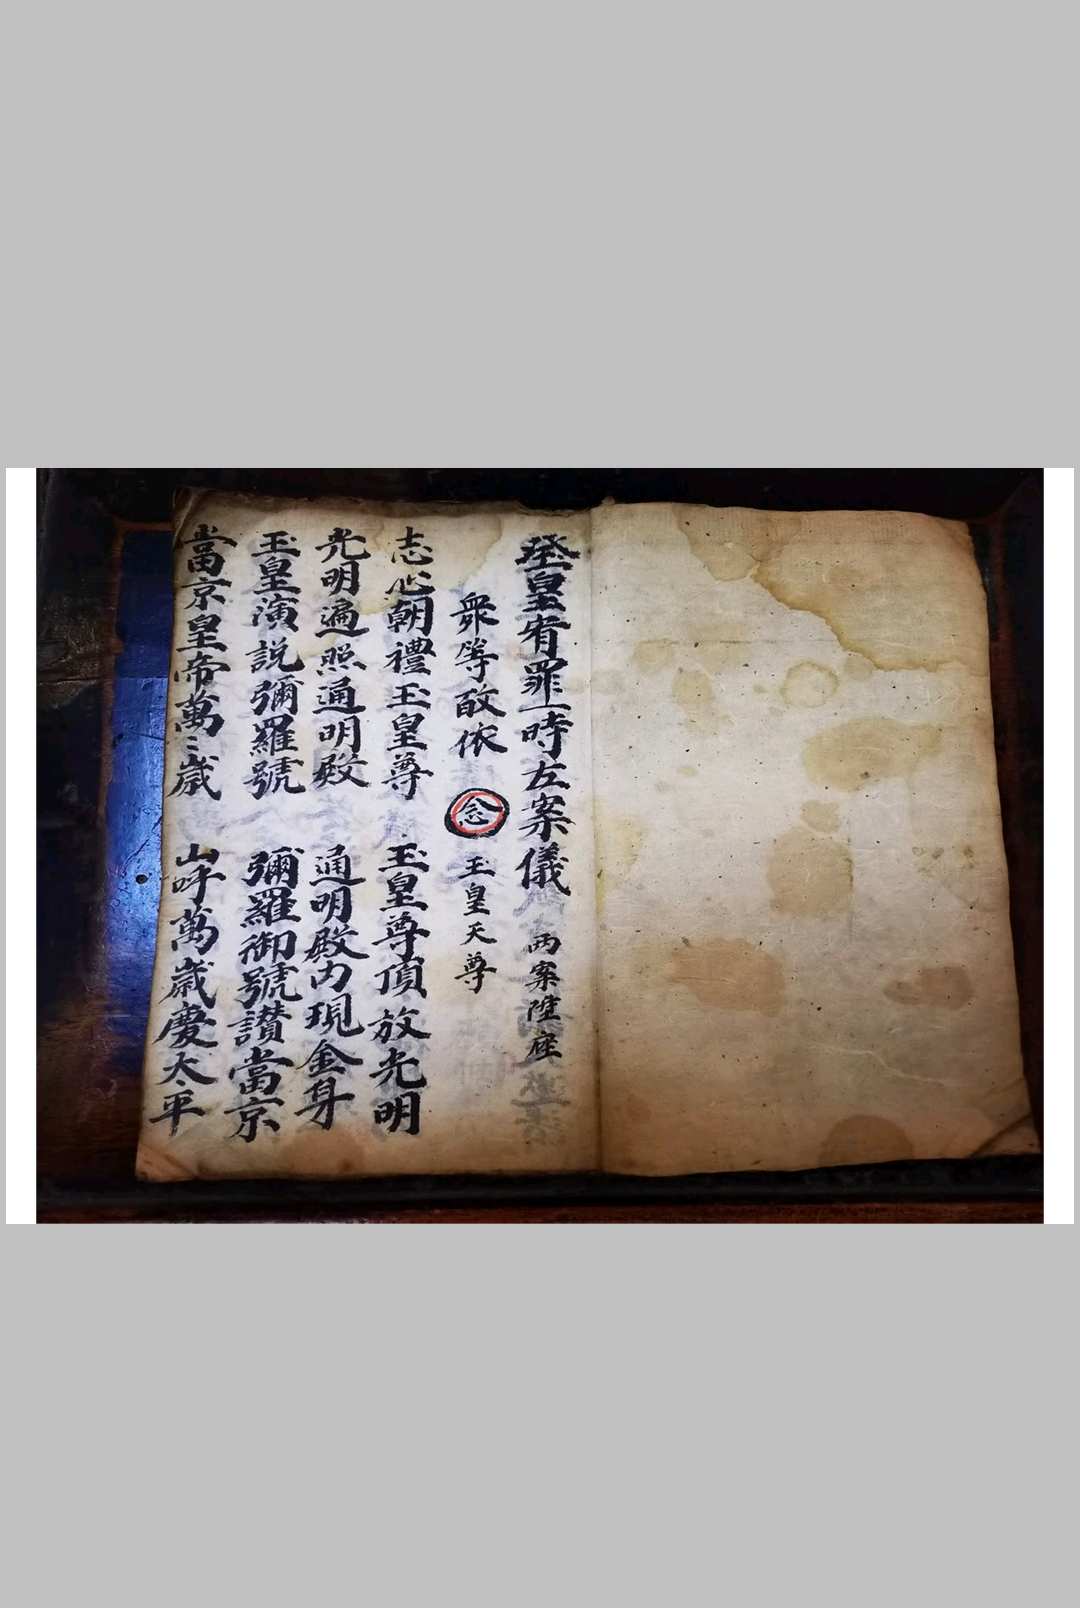 玉皇宥罪一時左案儀 两案陞座
衆等敂依 念 玉皇天尊
志心朝禮玉皇尊 玉皇尊頂放光明
光明遍照通明殿 通明殿内現金身
玉皇演說彌羅號 彌羅御號讃當京
當京皇帝萬〻歲 山呼萬歲慶太平